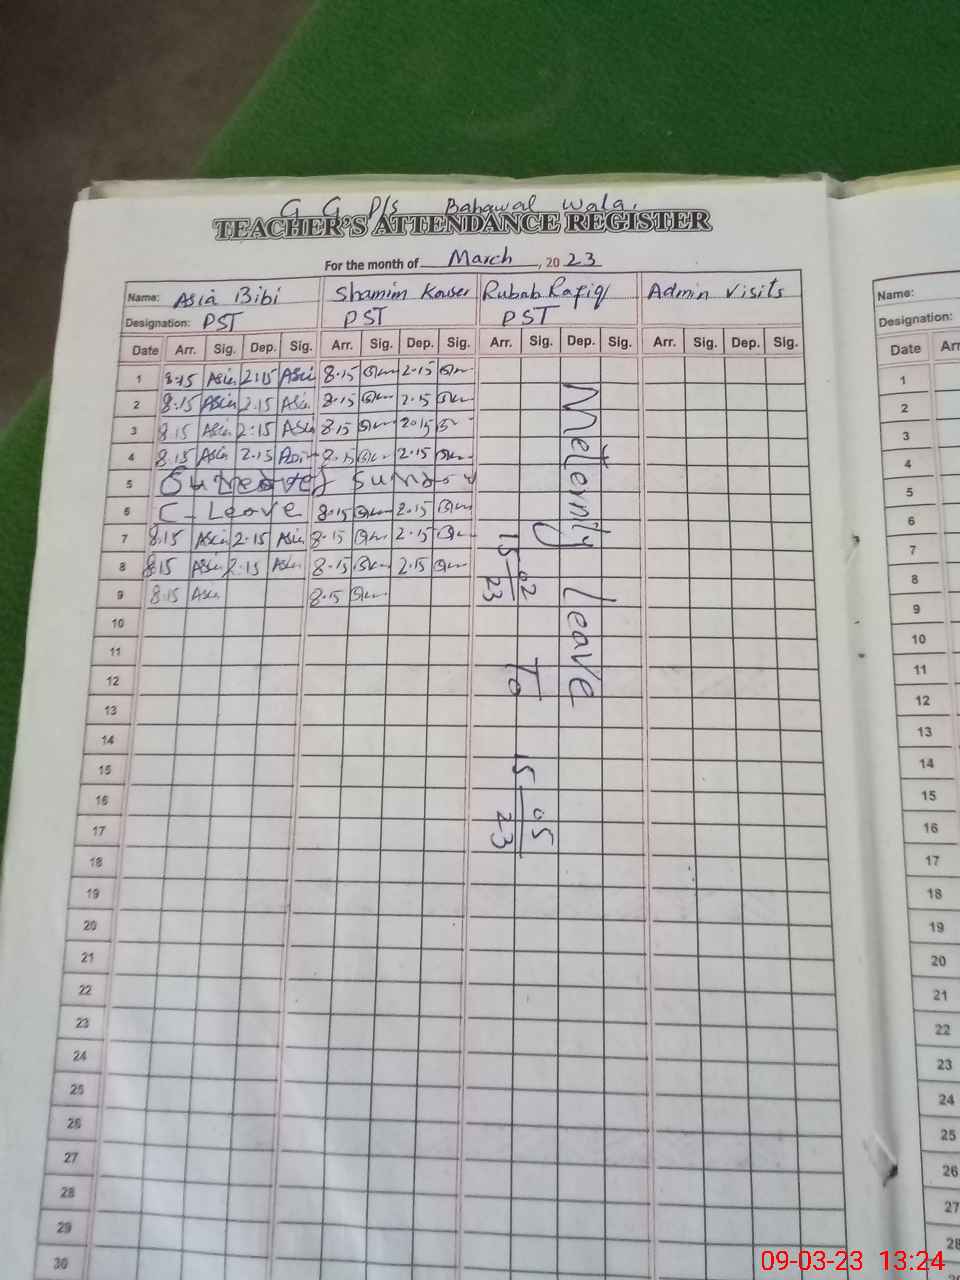 G G P/s Bahawal Wala.
TEACHER'S ATTENDANCE REGISTER
For the month of March, 2023
Name: Asia Bibi Shamim Kouser Rubab Rafiq Admin Visits
Designation: PST PST PST
Date Arr. Sig. Dep. Sig. Arr. Sig. Dep. Sig. Arr. Sig. Dep. Sig. Arr. Sig. Dep. Sig.
1 8:15 Asia 2:15 Asia 8.15 2.15
2 8.15 Asia 2.15 Asia 8.15 2.15
3 8.15 Asia 2:15 Asia 8.15 2.15
4 8.15 Asia 2.15 Asia 8.15 2.15
5 Sunday
6 C-Leave 8.15 2.15
7 8.15 Asia 2.15 Asia 8.15 2.15
8 8.15 Asia 2.15 Asia 8.15 2.15
9 8.15 Asia 8.15
10
11
12
13
14
15
16
17
18
19
20
21
22
23
24
25
26
27
28
29
30
Meternity Leave
15 02 23 To 15 05 23
Name:
Designation:
Date Arr
1
2
3
4
5
6
7
8
9
10
11
12
13
14
15
16
17
18
19
20
21
22
23
24
25
26
27
28
09-03-23 13:24